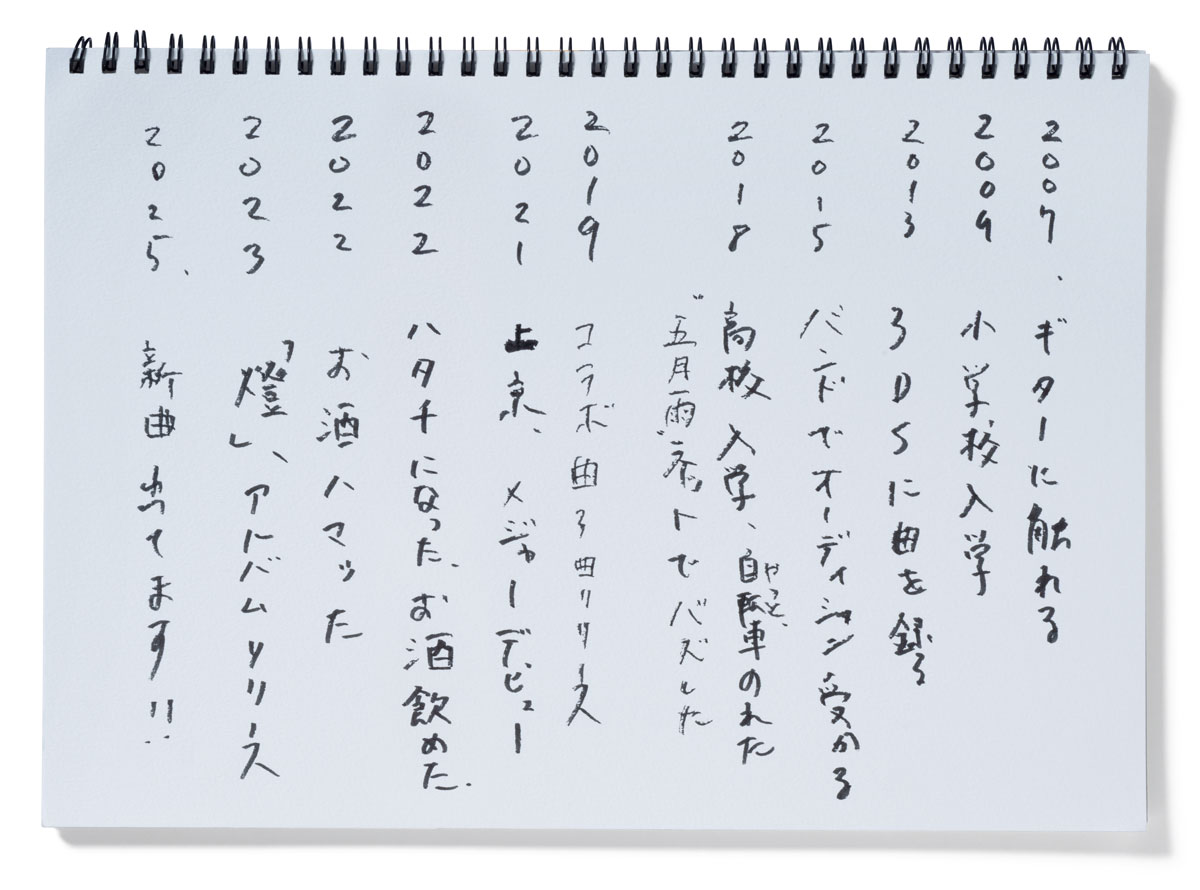 2007、ギターに触れる
2009 小学校入学
2013 3DSに曲を録る
2015 バンドでオーディション受かる
2018 高校入学、自転車のれた
やっと、
"五月雨"ネットでバズした
2019 コラボ曲3曲リリース
2021 上京、メジャーデビュー
2022 ハタチになった、お酒飲めた.
2022 お酒ハマった
2023 「燈」、アルバムリリース
2025、新曲出てます!!